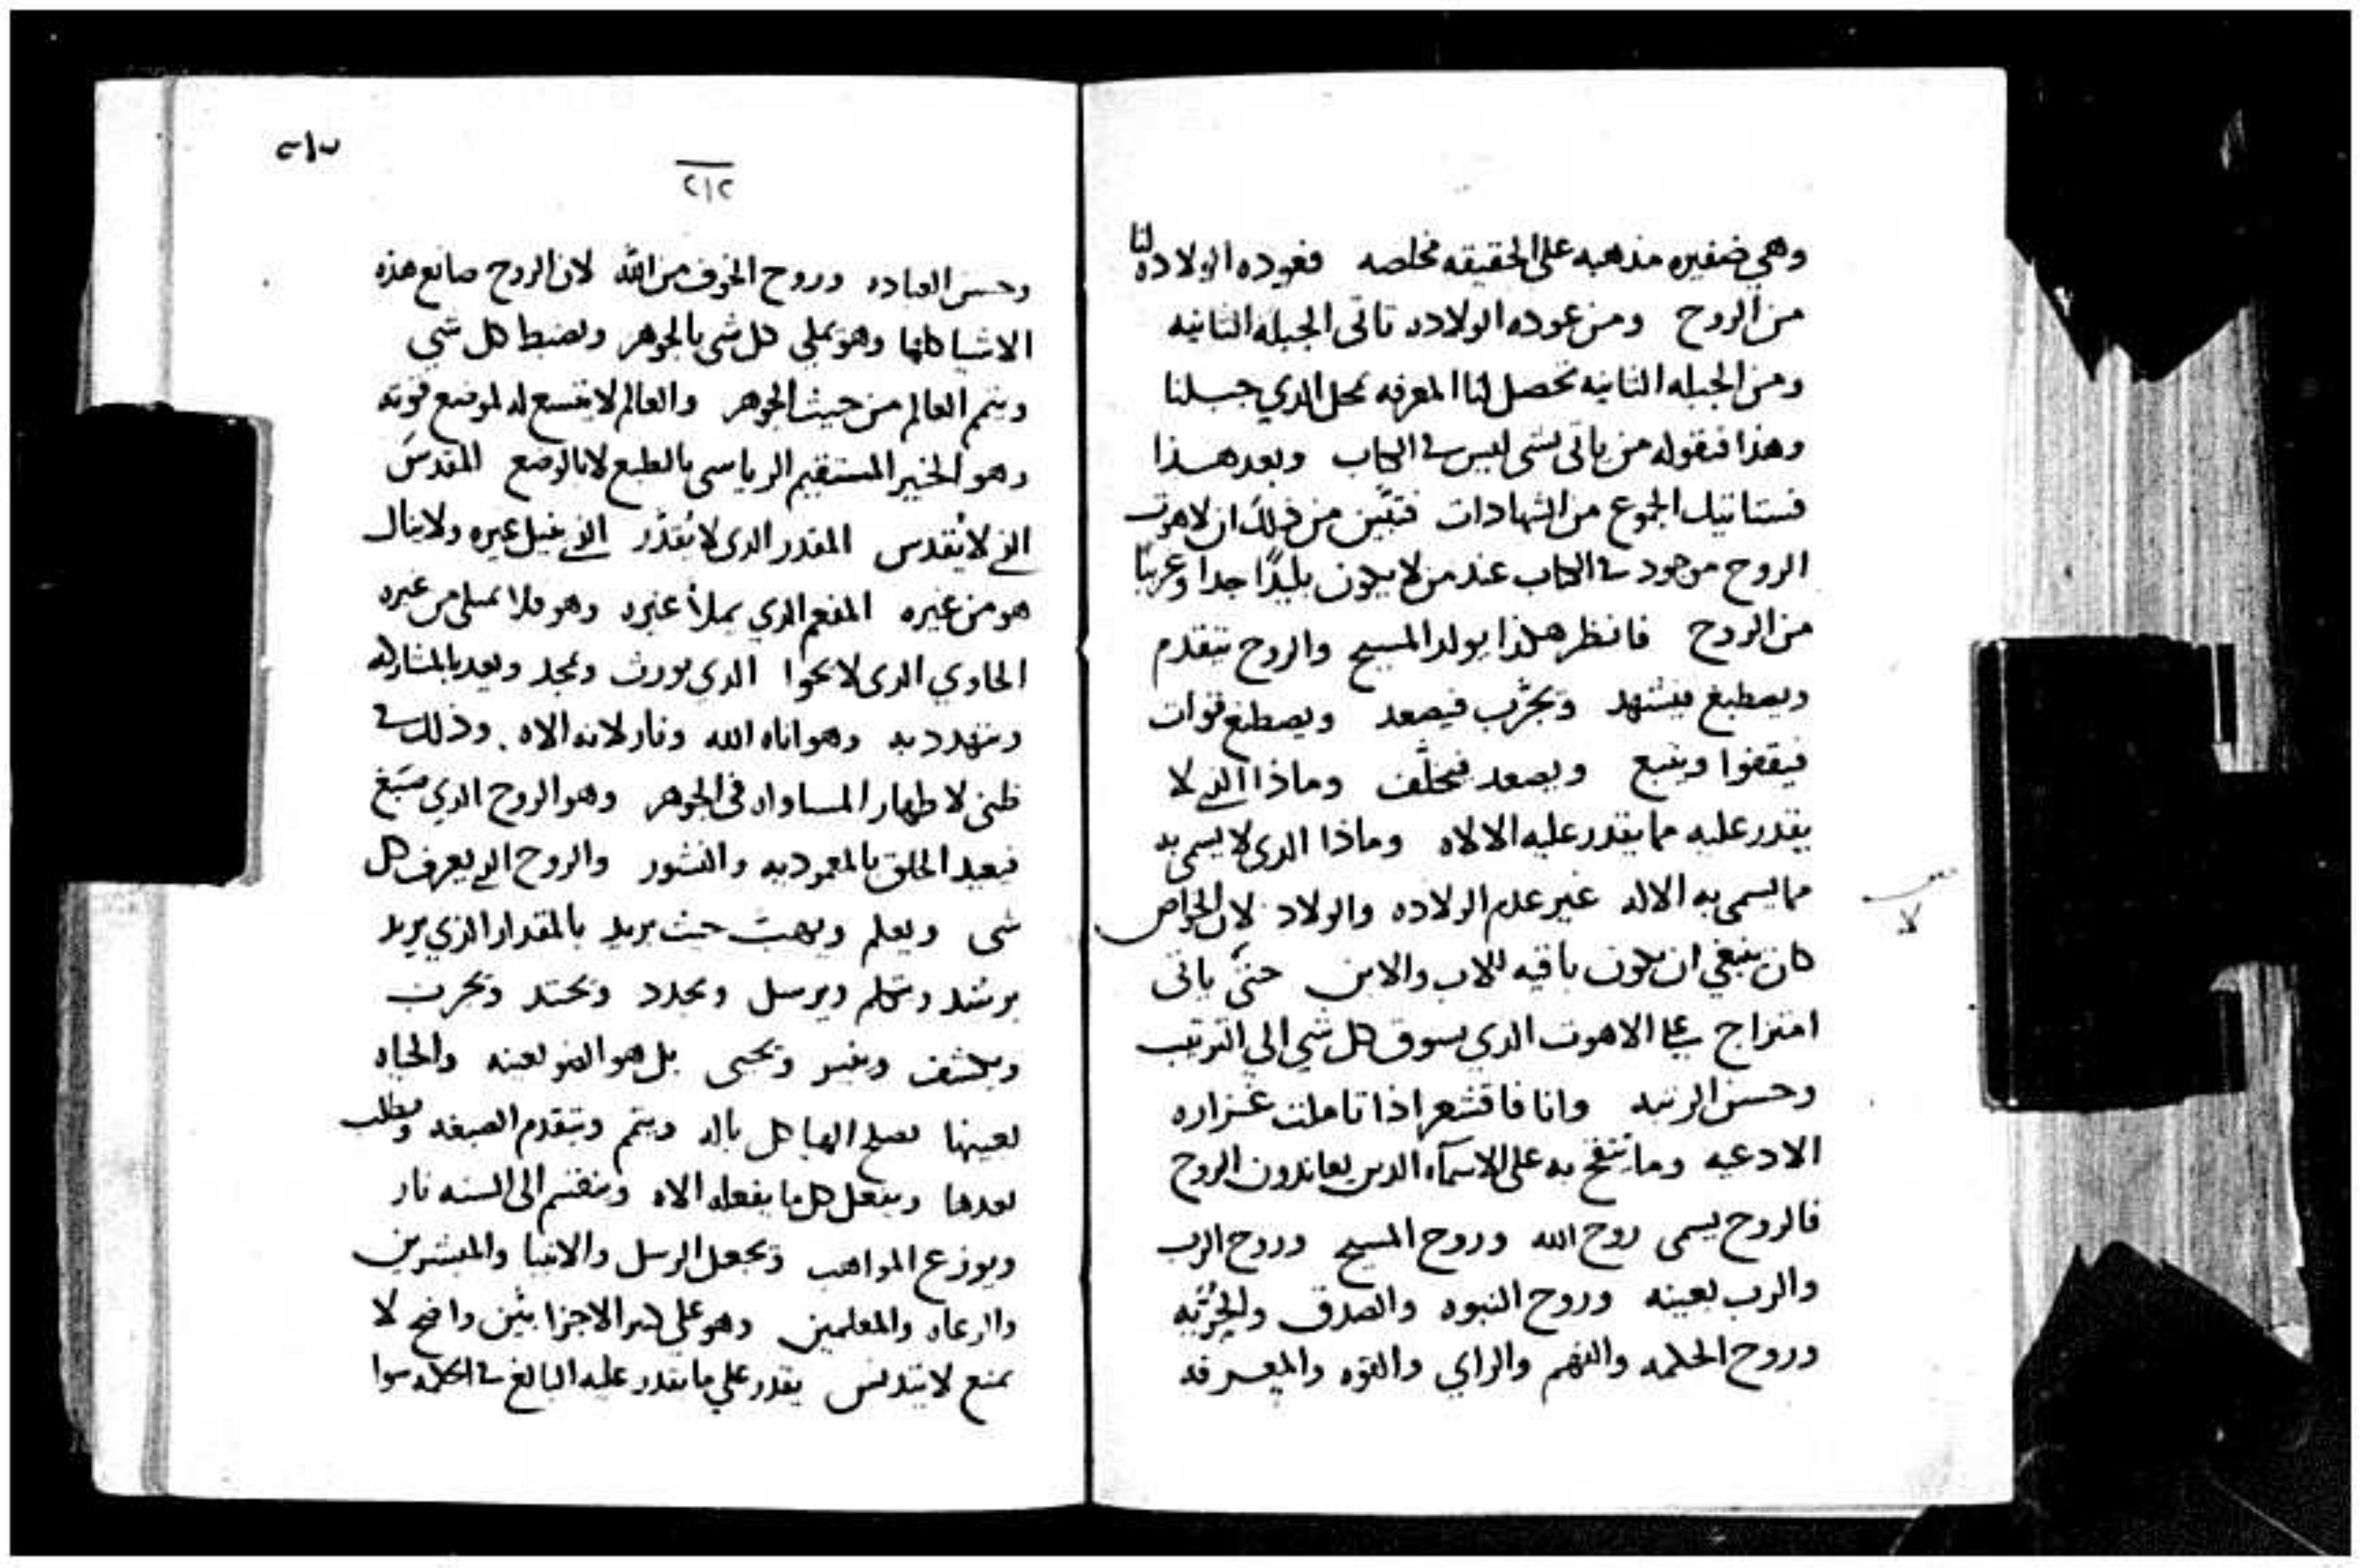 وهي ضفيره مذهبه على الحقيقه مخلصه فعوده الولاده لنا
من الروح ومن عوده الولاده تاتى الجبله الثانيه
ومن الجبله الثانيه تحصل لنا المعرفه بمحل الذي جبلنا
وهذا فنقوله من ياتى بشى ليس في الكتاب وبعد هذا
فستاتيك الجموع من الشهادات فتبين من ذلك ان لاهوت
الروح موجود في الكتاب عند من لا يكون بليدًا جدا وغريبًا
من الروح فانظر هكذا يولد المسيح والروح تتقدم
ويصطبغ فيشهد ويجرَّب فيصعد ويصطنع قوات
فيقفوا ويتبع ويصعد فيخلف وماذا الذي لا
يقدر عليه مما يقدر عليه الالاه وماذا الذى لا يسمى به
مما يسمى به الاله غير عدم الولاده والولاد لان الخواص
كان ينبغي ان تكون باقيه للاب والابن حتى ياتى
لا
امتزاج على الاهوت الذي يسوق كل شي الي الترتيب
وحسن الرتبه وانا فاقشعر اذا تاملت غزاره
الادعيه وما تنتفخ به على الاسمآء الذين يعاندون الروح
فالروح يسمى روح الله وروح المسيح وروح الرب
والرب بعينه وروح النبوه والصدق والحُرّيه
وروح الحكمه والفهم والراي والقوه والمعرفه
٢١٢
وحسن العباده وروح الخوف من الله لان الروح صانع هذه
الاشيا كلها وهو يملي كل شى بالجوهر ويضبط كل شي
ويتم العالم من حيث الجوهر والعالم لا يتسع له لموضع قوته
وهو الخير المستقيم الرياسى بالطبع لا بالوضع المقدس
الذي لا يُقدس المقدر الذى لا يُقدَّر الذي ينيل غيره ولا ينال
هو من غيره المفعم الذي يملأ غيره وهو فلا يمتلى من غيره
الحاوي الذى لا يحوا الذي يورث ويمجد ويعد بالمشاركه
ويتهدد به وهو اناه الله ونار لانه الاه وذلك في
ظني لاظهار المساواه فى الجوهر وهو الروح الذي صبغ
فيعيد الخلق بالمعموديه والنشور والروح الذي يعرف كل
شى ويعلم ويهب حيث يريد بالمقدار الذي يريد
يرشد ويتكلم ويرسل ويجدد ويحتد ويجرب
ويكشف وينير ويحيى بل هو الضو بعينه والحياه
بعينها يصلح الهياكل باله ويتم ويتقدم الصبغه ويطلب
بعدها ويفعل كل ما يفعله الاه وينقسم الى السنه نار
ويوزع المواهب ويجعل الرسل والانبيا والمبشرين
والرعاه والمعلمين وهو على كثير الاجزا بيّن واضح لا
يمنع لا يتدنس يقدر علي ما يقدر عليه البالغ في الحكمه سوا